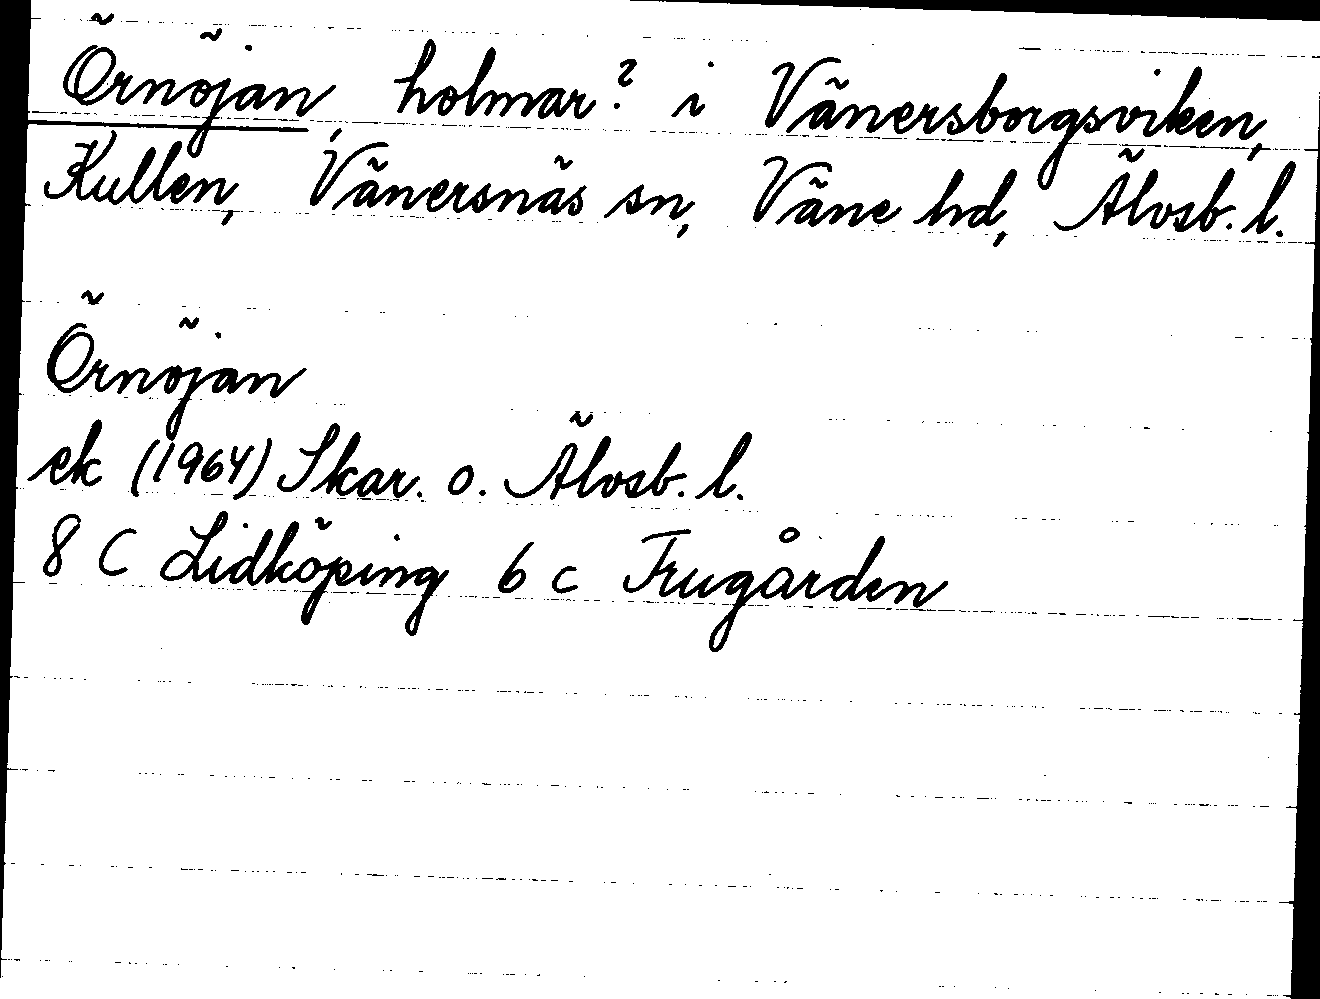 Örnöjan, holmar? i Vänersborgsviken,
Kullen, Vänersnäs sn, Väne hd, Älvsb. l.
Örnöjan
ek (1964) Skar. o. Älvsb. l.
8 C Lidköping 6 c Frugården